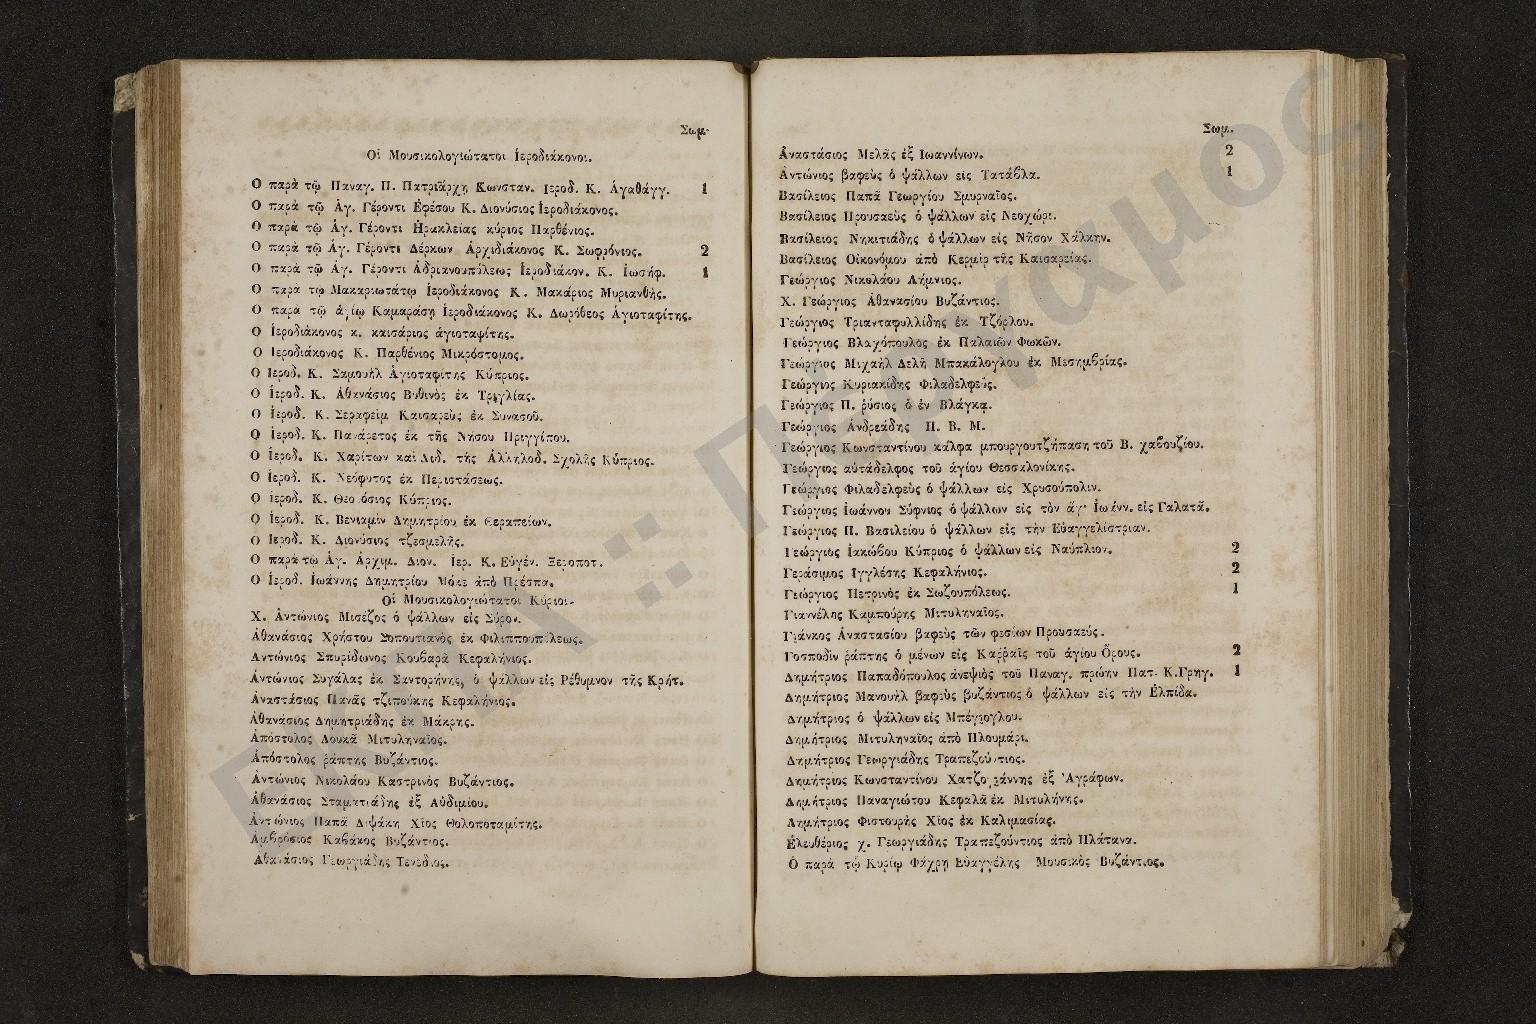 Σωμ.
Οἱ Μουσικολογιώτατοι Ἱεροδιάκονοι.
Ο παρὰ τῷ Παναγ. Π. Πατριάρχῃ Κωνσταν. Ιεροδ. Κ. Ἀγαθάγγ. 1
Ο παρὰ τῷ Ἁγ. Γέροντι Ἐφέσου Κ. Διονύσιος Ἱεροδιάκονος.
Ο παρὰ τῷ Ἁγ. Γέροντι Ἡρακλείας κύριος Παρθένιος.
Ο παρὰ τῷ Ἁγ. Γέροντι Δέρκων Ἀρχιδιάκονος Κ. Σωφρόνιος. 2
Ο παρὰ τῷ Ἁγ. Γέροντι Ἀδριανουπόλεως Ἱεροδιάκον. Κ. Ἰωσήφ. 1
Ο παρὰ τῷ Μακαριωτάτῳ Ἱεροδιάκονος Κ. Μακάριος Μυριανθής.
Ο παρὰ τῷ ἁγίῳ Καμαράσῃ Ἱεροδιάκονος Κ. Δωρόθεος Ἁγιοταφίτης.
Ο Ἱεροδιάκονος κ. καισάριος ἁγιοταφίτης.
Ο Ἱεροδιάκονος Κ. Παρθένιος Μικρόστομος.
Ο Ἱεροδ. Κ. Σαμουὴλ Ἁγιοταφίτης Κύπριος.
Ο Ἱεροδ. Κ. Ἀθανάσιος Βυθινὸς ἐκ Τριγλίας.
Ο Ἱεροδ. Κ. Σεραφεὶμ Καισαρεὺς ἐκ Συνασοῦ.
Ο Ἱεροδ. Κ. Πανάρετος ἐκ τῆς Νήσου Πριγγίπου.
Ο Ἱεροδ. Κ. Χαρίτων καὶ Διδ. τῆς Ἀλληλοδ. Σχολῆς Κύπριος.
Ο Ἱεροδ. Κ. Νεόφυτος ἐκ Περιστάσεως.
Ο Ἱεροδ. Κ. Θεοδόσιος Κύπριος.
Ο Ἱεροδ. Κ. Βενιαμὶν Δημητρίου ἐκ Θεραπείων.
Ο Ἱεροδ. Κ. Διονύσιος τζεσμελῆς.
Ο παρὰ τῷ Ἁγ. Ἀρχιμ. Διον. Ἱερ. Κ. Εὐγέν. Ξεροποτ.
Ο Ἱεροδ. Ἰωάννης Δημητρίου ἀπὸ Πρέσπα.
Οἱ Μουσικολογιώτατοι Κύριοι.
Χ. Ἀντώνιος Μισέζος ὁ ψάλλων εἰς Σύρον.
Ἀθανάσιος Χρήστου Σοπουτιανὸς ἐκ Φιλιππουπόλεως.
Αντώνιος Σπυρίδωνος Κουβαρᾶ Κεφαλήνιος.
Ἀντώνιος Συγάλας ἐκ Σαντορήνης, ὁ ψάλλων εἰς Ρέθυμνον τῆς Κρήτ.
Ἀναστάσιος Πανᾶς τζιπούκης Κεφαλήνιος.
Ἀθανάσιος Δημητριάδης ἐκ Μάκρης.
Ἀπόστολος Δουκᾶ Μιτυληναῖος.
Ἀπόστολος ῥάπτης Βυζάντιος.
Ἀντώνιος Νικολάου Καστρινὸς Βυζάντιος.
Ἀθανάσιος Σταματιάδης ἐξ Αὐδιμίου.
Ἀντώνιος Παπᾶ Διψάκη Χῖος Θολοποταμίτης.
Ἀμβρόσιος Καβάκος Βυζάντιος.
Ἀθανάσιος Γεωργιάδης Τενέδιος.
Σωμ.
Ἀναστάσιος Μελᾶς ἐξ Ἰωαννίνων. 2
Ἀντώνιος βαφεὺς ὁ ψάλλων εἰς Τατάβλα. 1
Βασίλειος Παπᾶ Γεωργίου Σμυρναῖος.
Βασίλειος Προυσαεὺς ὁ ψάλλων εἰς Νεοχώρι.
Βασίλειος Νηκιτιάδης ὁ ψάλλων εἰς Νῆσον Χάλκην.
Βασίλειος Οἰκονόμου ἀπὸ Κερμὶρ τῆς Καισαρείας.
Γεώργιος Νικολάου Λήμνιος.
Χ. Γεώργιος Ἀθανασίου Βυζάντιος.
Γεώργιος Τριανταφυλλίδης ἐκ Τζόρλου.
Γεώργιος Βλαχόπουλος ἐκ Παλαιῶν Φωκῶν.
Γεώργιος Μιχαὴλ Δελῆ Μπακάλογλου ἐκ Μεσημβρίας.
Γεώργιος Κυριακίδης Φιλαδελφεύς.
Γεώργιος Π. ῥύσιος ὁ ἐν Βλάγκᾳ.
Γεώργιος Ἀνδρεάδης Π. Β. Μ.
Γεώργιος Κωνσταντίνου κάλφα μπουργουτζήπαση τοῦ Β. χαβουζίου.
Γεώργιος αὐτάδελφος τοῦ ἁγίου Θεσσαλονίκης.
Γεώργιος Φιλαδελφεὺς ὁ ψάλλων εἰς Χρυσούπολιν.
Γεώργιος Ἰωάννου Σύφνιος ὁ ψάλλων εἰς τὸν ἅγ· Ἰωάνν. εἰς Γαλατᾶ.
Γεώργιος Π. Βασιλείου ὁ ψάλλων εἰς τὴν Εὐαγγελίστριαν.
Γεώργιος Ἰακώβου Κύπριος ὁ ψάλλων εἰς Ναύπλιον. 2
Γεράσιμος Ἰγγλέσης Κεφαλήνιος. 2
Γεώργιος Πετρινὸς ἐκ Σωζουπόλεως. 1
Γιαννέλης Καμπούρης Μιτυληναῖος.
Γιάνκος Ἀναστασίου βαφεὺς τῶν φεσίων Προυσαεύς.
Γοσποδὶν ῥάπτης ὁ μένων εἰς Καρραῖς τοῦ ἁγίου Ὄρους. 2
Δημήτριος Παπαδόπουλος ἀνεψιὸς τοῦ Παναγ. πρώην Πατ. Κ. Γρηγ. 1
Δημήτριος Μανουὴλ βαφεὺς βυζάντιος ὁ ψάλλων εἰς τὴν Ἐλπίδα.
Δημήτριος ὁ ψάλλων εἰς Μπέγιογλου.
Δημήτριος Μιτυληναῖος ἀπὸ Πλουμάρι.
Δημήτριος Γεωργιάδης Τραπεζούντιος.
Δημήτριος Κωνσταντίνου Χατζογιάννης ἐξ Ἀγράφων.
Δημήτριος Παναγιώτου Κεφαλᾶ ἐκ Μιτυλήνης.
Δημήτριος Φιστουρῆς Χῖος ἐκ Καλιμασίας.
Ἐλευθέριος χ. Γεωργιάδης Τραπεζούντιος ἀπὸ Πλάτανα.
Ὁ παρὰ τῷ Κυρίῳ Φάχρῃ Εὐαγγέλης Μουσικὸς Βυζάντιος.